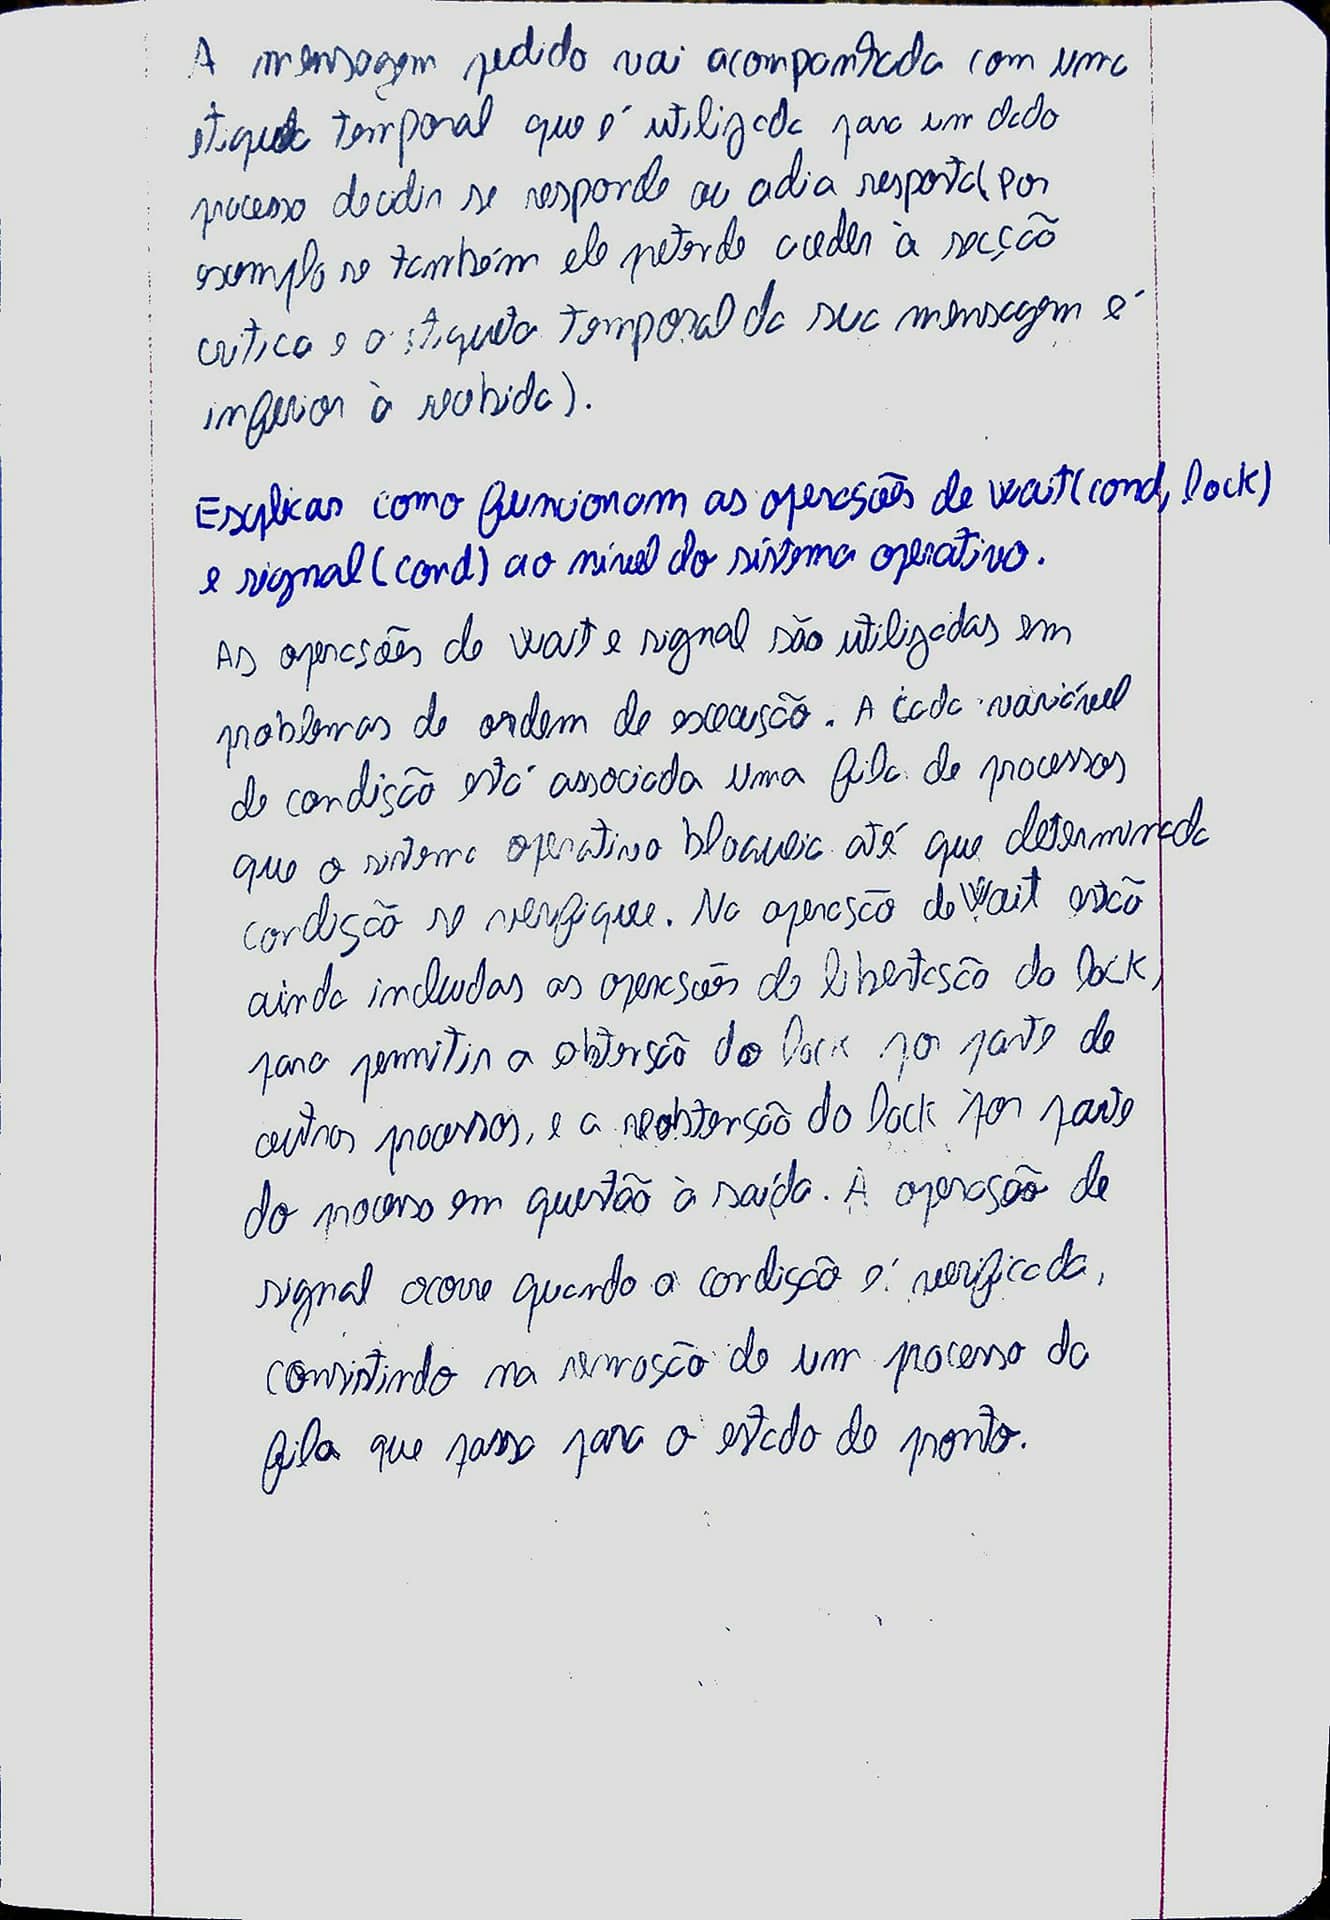 A mensagem pedido vai acompanhada com uma
etiqueta temporal que é utilizada para um dado
processo decidir se responde ou adia resposta (por
exemplo se também ele pretende aceder à secção
crítica e a etiqueta temporal da sua mensagem é
inferior à recebida).
Explicar como funcionam as operações de wait(cond, lock)
e signal(cond) ao nível do sistema operativo.
As operações de wait e signal são utilizadas em
problemas de ordem de execução. A cada variável
de condição está associada uma fila de processos
que o sistema operativo bloqueia até que determinada
condição se verifique. Na operação de Wait estão
ainda incluídas as operações de libertação do lock,
para permitir a obtenção do lock por parte de
outros processos, e a reobtenção do lock por parte
do processo em questão à saída. A operação de
signal ocorre quando a condição é verificada,
consistindo na remoção de um processo da
fila que passa para o estado de pronto.